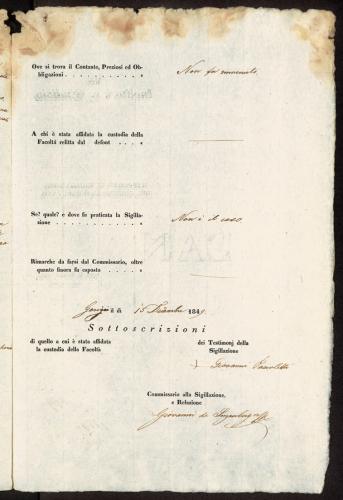 Ove si trova il Contante, Preziosi ed Ob-
bligazioni . . . . . . . . . . Non fu rinvenuto
A chi è stata affidata la custodia della
Facoltà relitta dal defont . . . .
Se? quale? e dove fu praticata la Sigilla-
zione . . . . . . . . . . Non è il caso
Rimarche da farsi dal Commissario, oltre
quanto finora fu esposto . . . . .
il dì 15 184
Sottoscrizioni
di quello a cui è stata affidata
la custodia della Facoltà
dei Testimonj della
Sigillazione
Giovanni
Commissario alla Sigillazione,
e Relazione
Giovanni de